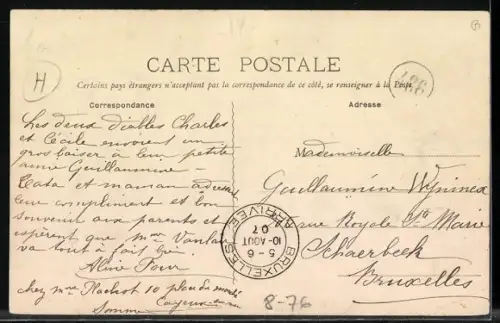 H
CARTE POSTALE
486
Certains pays étrangers n'acceptant pas la correspondance de ce côté, se renseigner à la Poste
Correspondance
Les deux diables Charles
et Cécile envoient un
gros baiser à leur petite
amie Guillaumine –
Tata et maman adressent
leur compliment et bon
souvenir aux parents et
espèrent que mme
va tout à fait bien
Aline
chez mme 10 place du marché
Cayeux
Somme
Adresse
Mademoiselle
Guillaumine
rue Royale Ste Marie
Schaerbeek
Bruxelles
BRUXELLES
ARRIVEE
5 - 6
10 AOUT
07
8-76